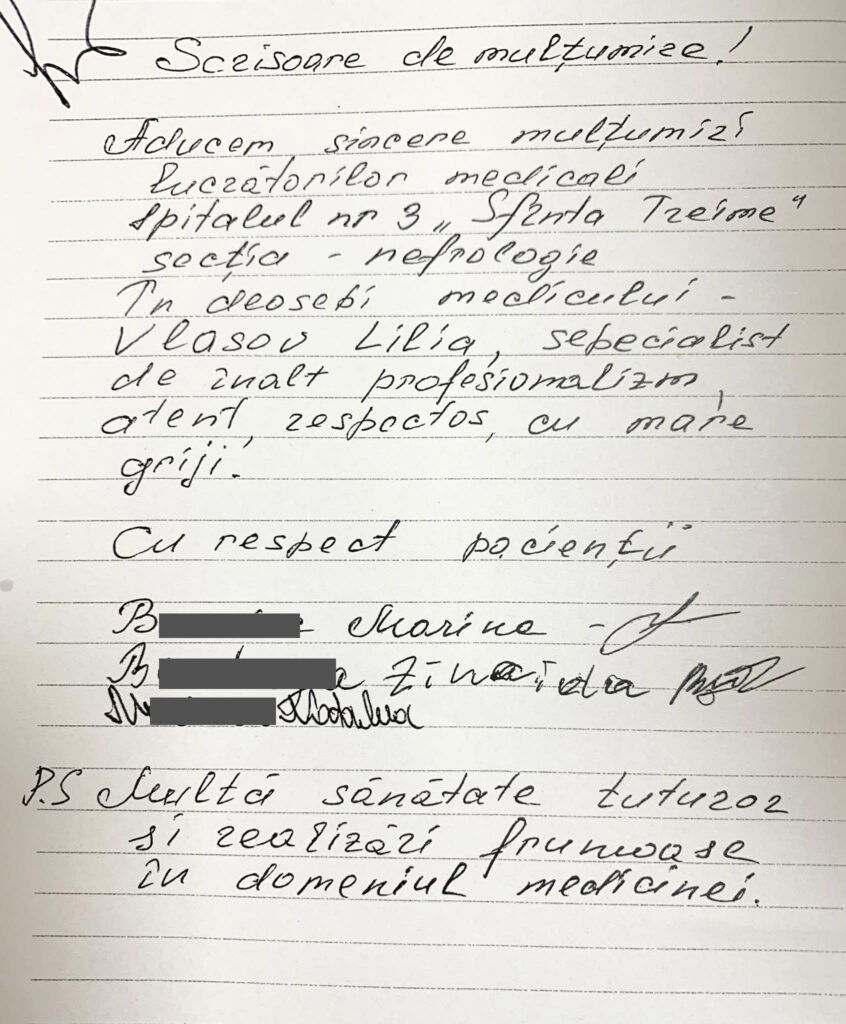 Scrisoare de mulțumire!
Aducem sincere mulțumiri
lucrătorilor medicali
Spitalul nr 3 „Sfînta Treime"
secția - nefrologie
În deosebi medicului -
Vlasov Lilia, sepecialist
de înalt profesionalizm,
atent, respectos, cu mare
griji.
Cu respect pacienții
B Marina -
B a Zinaida
P.S Multă sănătate tuturor
si realizări frumoase
în domeniul medicinei.